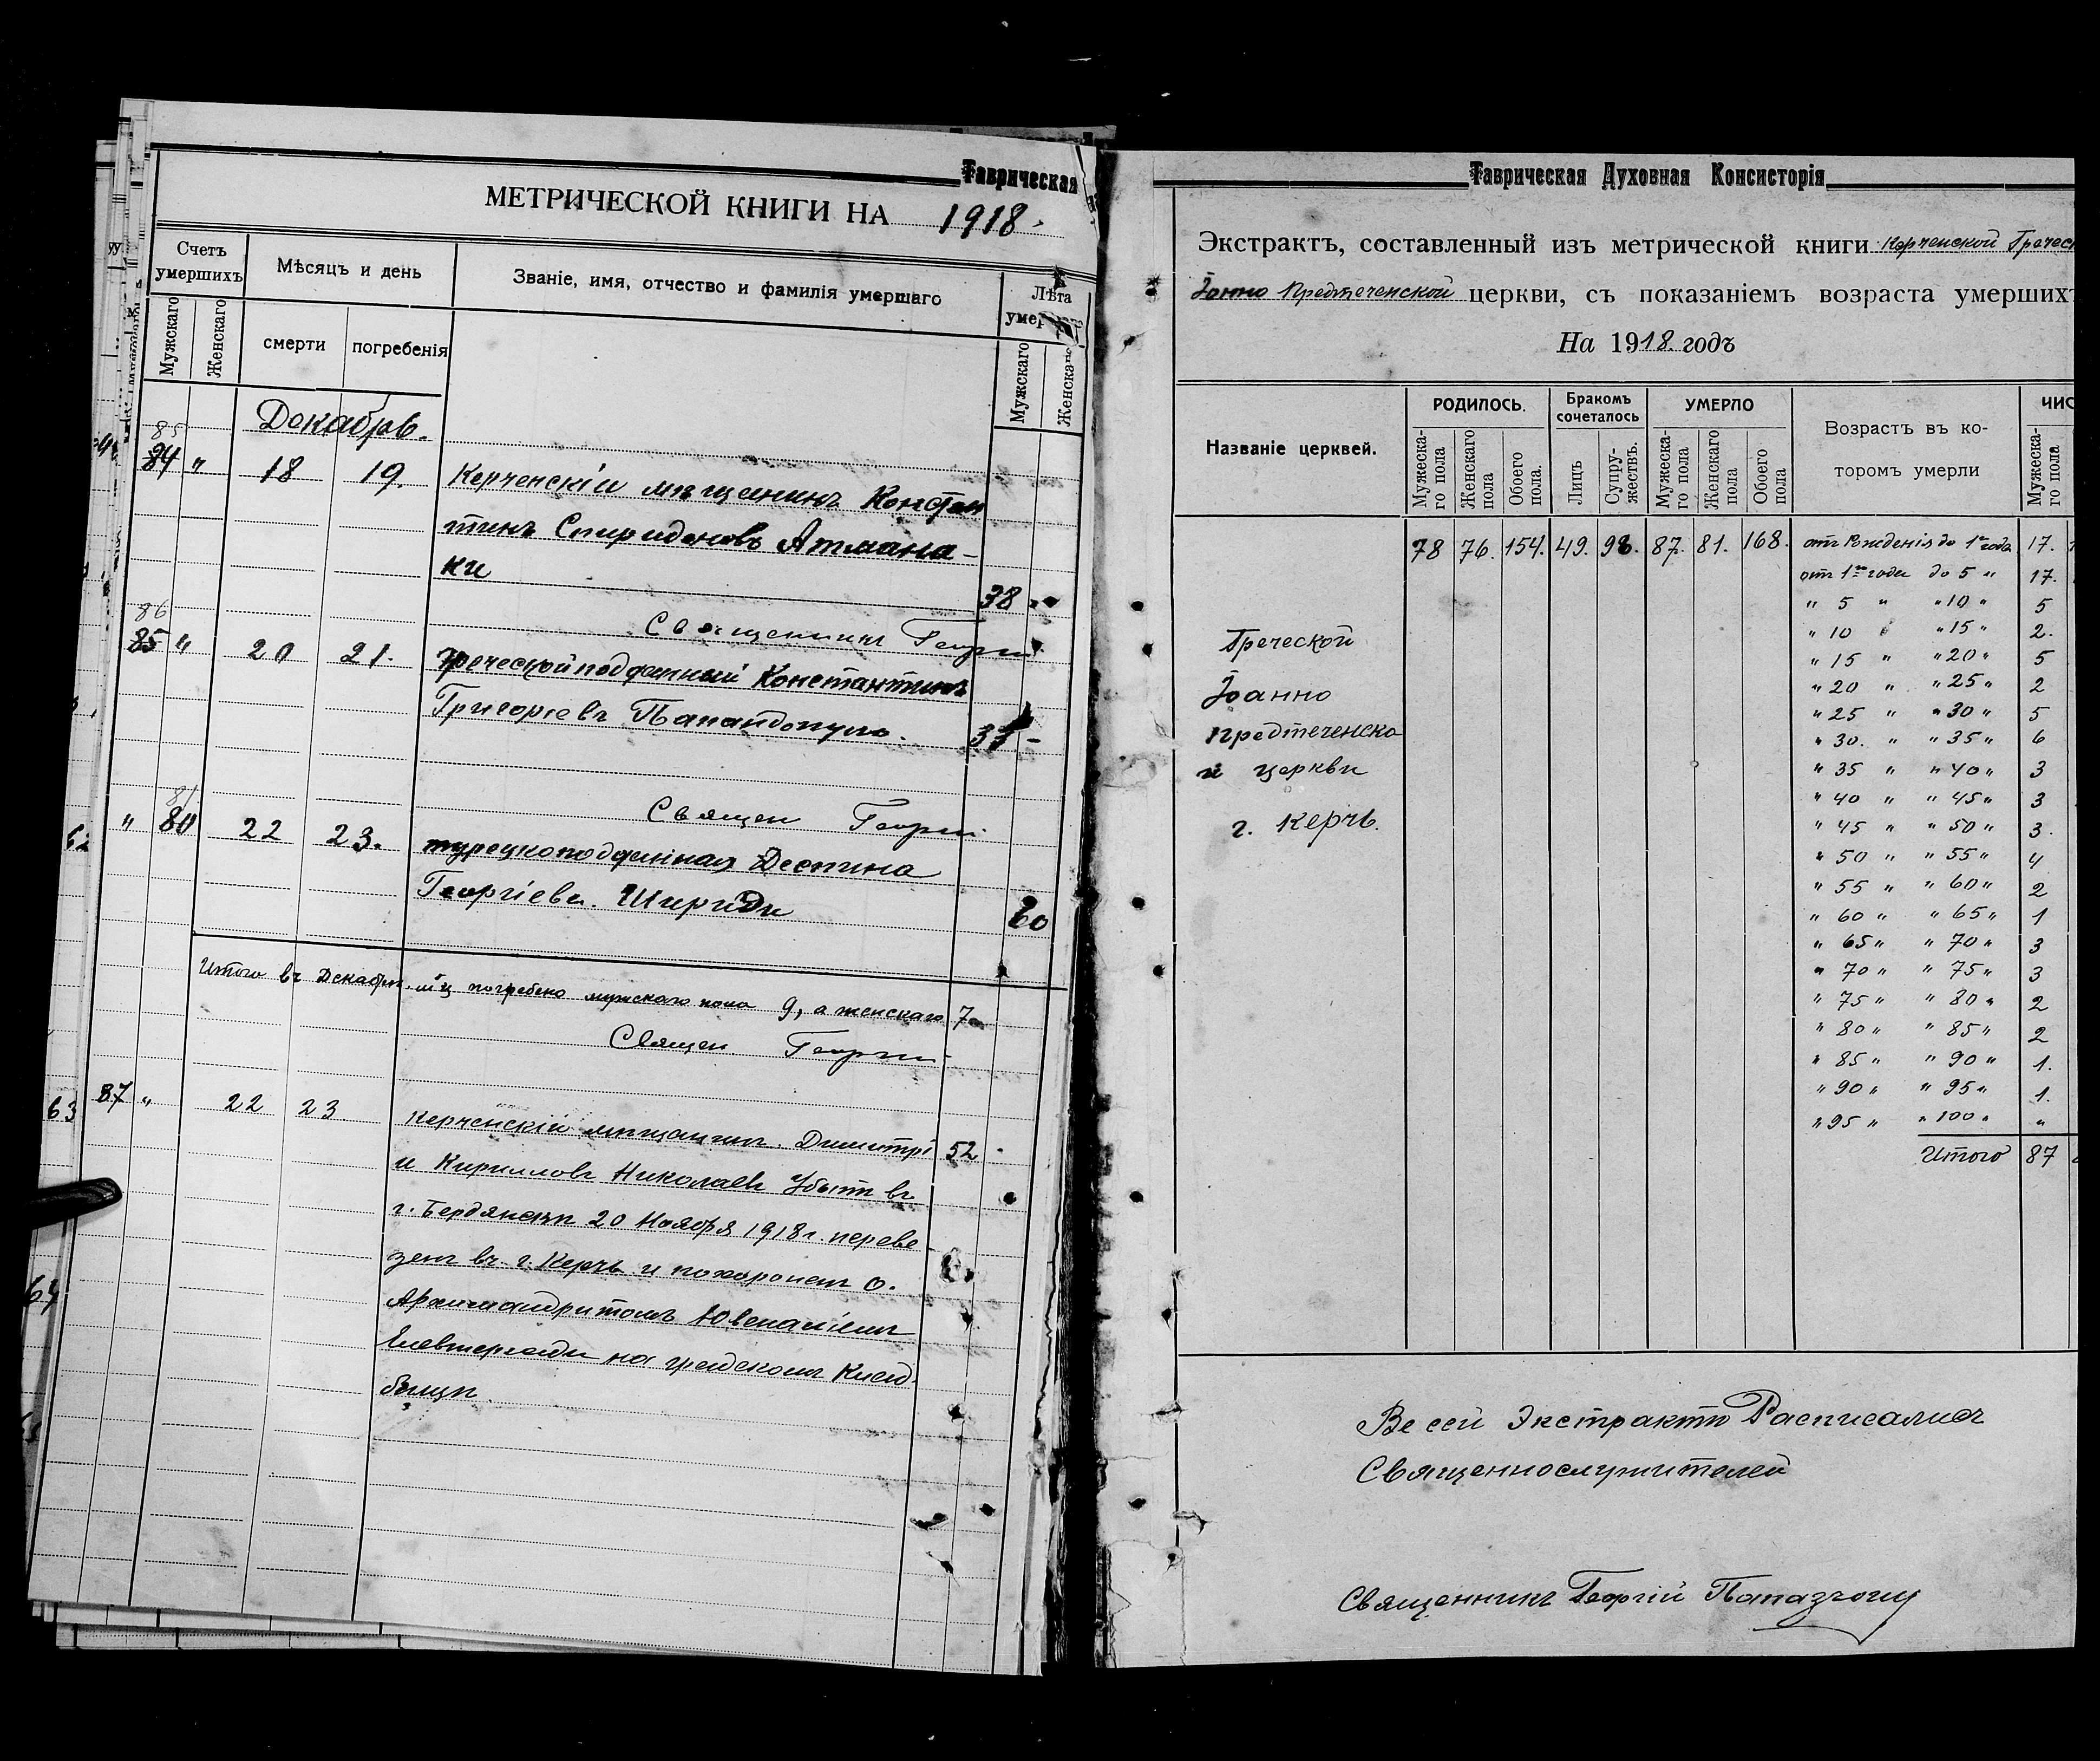 Таврическая
МЕТРИЧЕСКОЙ КНИГИ НА 1918.
Счетъ умершихъ
Мѣсяцъ и день
Званіе, имя, отчество и фамилія умершаго
Лѣта
Мужскаго
Женскаго
смерти
погребенія
Мужскаго
Декабрь.
85
84 " 18 19. Керченскій мѣщанинъ Констан
тинъ Спиридоновъ Атмана-
ки
38 "
86
Священникъ Георгій
85 " 20 21. греческоподданный Константинъ
Григорьевъ Папандопуло.
Священ Георгій
81
" 80 22 23. турецкоподданная Деспина
Георгіева Шириди
60
Итого въ Декабрѣ м-цѣ погребено мужскаго пола 9, а женскаго 7
Священ. Георгій
87 " 22 23 Керченскій мѣщанинъ Димитрі 52
й Кирилловъ Николаевъ Убитъ въ
г. Бердянскѣ 20 Ноября 1918 г. переве
зенъ въ г. Керчь и похороненъ О.
Архимандритомъ Ювеналіемъ
на градскомъ Клад
бищѣ.
62
63
64
Таврическая Духовная Консисторія
Экстрактъ, составленный изъ метрической книги Керченской Гречес
Іоанно Предтеченской церкви, съ показаніемъ возраста умершихъ
На 1918. годъ
Названіе церквей.
РОДИЛОСЬ.
Бракомъ сочеталось
УМЕРЛО
Возрастъ въ ко-
торомъ умерли
ЧИС
Мужеска-го пола
Женскаго пола
Обоего пола.
Лицъ
Супру-жествъ.
Мужеска-го пола
Женскаго пола
Обоего пола
Мужеска-го пола
78 76. 154. 49. 98. 87. 81. 168. отъ Рожденія до 1го года 17.
отъ 1го года до 5 " 17.
" 5 " " 10 " 5
" 10 " " 15 " 2.
" 15 " " 20 " 5
" 20 " " 25 " 2
" 25 " " 30 " 5
" 30. " " 35 " 6
" 35 " " 40 " 3
" 40 " " 45 " 3
" 45 " " 50 " 3.
" 50 " " 55 " 4
" 55 " " 60 " 2
" 60 " " 65 " 1
" 65 " " 70 " 3
" 70 " " 75 " 3
" 75 " " 80 " 2
" 80 " " 85 " 2
" 85 " " 90 " 1.
" 90 " " 95 " 1.
" 95 " " 100 " "
Итого 87
Греческой
Іоанно
Предтеченско
й церкви
г. Керчь.
Ве сей Экстрактъ Расписались
Священнослужителей
Священникъ Георгій